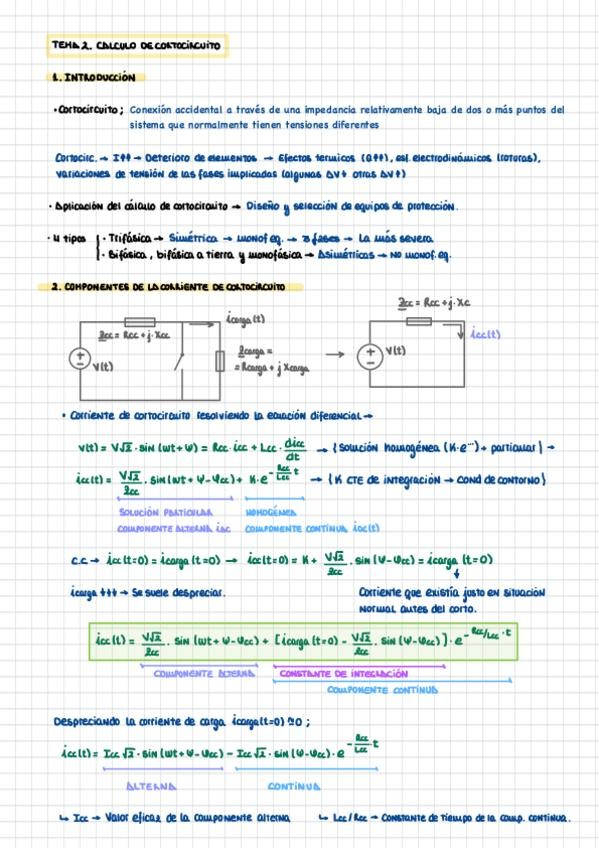 TEMA 2. CALCULO DE CORTOCIRCUITO
1. INTRODUCCIÓN
• Cortocircuito; Conexión accidental a través de una impedancia relativamente baja de dos o más puntos del
sistema que normalmente tienen tensiones diferentes
Cortocirc. → I↑↑ → Deterioro de elementos → Efectos termicos (Q↑↑), esf. electrodinámicos (roturas),
variaciones de tensión de las fases implicadas (algunas ΔV↓ otras ΔV↑)
• Aplicación del cálculo de cortocircuito → Diseño y selección de equipos de protección.
• 4 tipos
• Trifásica → Simétrica → monof eq. → 3 fases → La más severa
• Bifásica, bifásica a tierra y monofásica → Asimétricas → No monof. eq.
2. COMPONENTES DE LA CORRIENTE DE CORTOCIRCUITO
Zcc = Rcc + j·Xcc
icarga(t)
V(t)
Zcarga =
= Rcarga + j Xcarga
→
Zcc = Rcc + j·Xc
icc(t)
V(t)
• Corriente de cortocircuito resolviendo la ecuación diferencial →
v(t) = V√2 · sin (wt + Ψ) = Rcc · icc + Lcc · dicc/dt → {Solución homogénea (K·e^…) + particular} →
icc(t) = V√2/Zcc · sin (wt + Ψ - Ψcc) + K·e^(-Rcc/Lcc t) → {K CTE de integración → Cond de contorno}
SOLUCIÓN PARTICULAR HOMOGÉNEA
COMPONENTE ALTERNA iac COMPONENTE CONTINUA idc(t)
C.C → icc(t=0) = icarga (t=0) → icc(t=0) = K + V√2/Zcc · sin (Ψ - Ψcc) = icarga (t=0)
icarga ↓↓↓ → Se suele despreciar.
Corriente que existía justo en situación
normal antes del corto.
icc(t) = V√2/Zcc · sin (wt + Ψ - Ψcc) + [icarga(t=0) - V√2/Zcc · sin (Ψ - Ψcc)] · e^(-Rcc/Lcc · t)
COMPONENTE ALTERNA CONSTANTE DE INTEGRACIÓN
COMPONENTE CONTINUA
Despreciando la corriente de carga icarga(t=0) ≈ 0;
icc(t) = Icc √2 · sin (wt + Ψ - Ψcc) - Icc √2 · sin (Ψ - Ψcc) · e^(-Rcc/Lcc t)
ALTERNA CONTINUA
↳ Icc → Valor eficas de la componente alterna ↳ Lcc/Rcc → Constante de tiempo de la comp. continua.